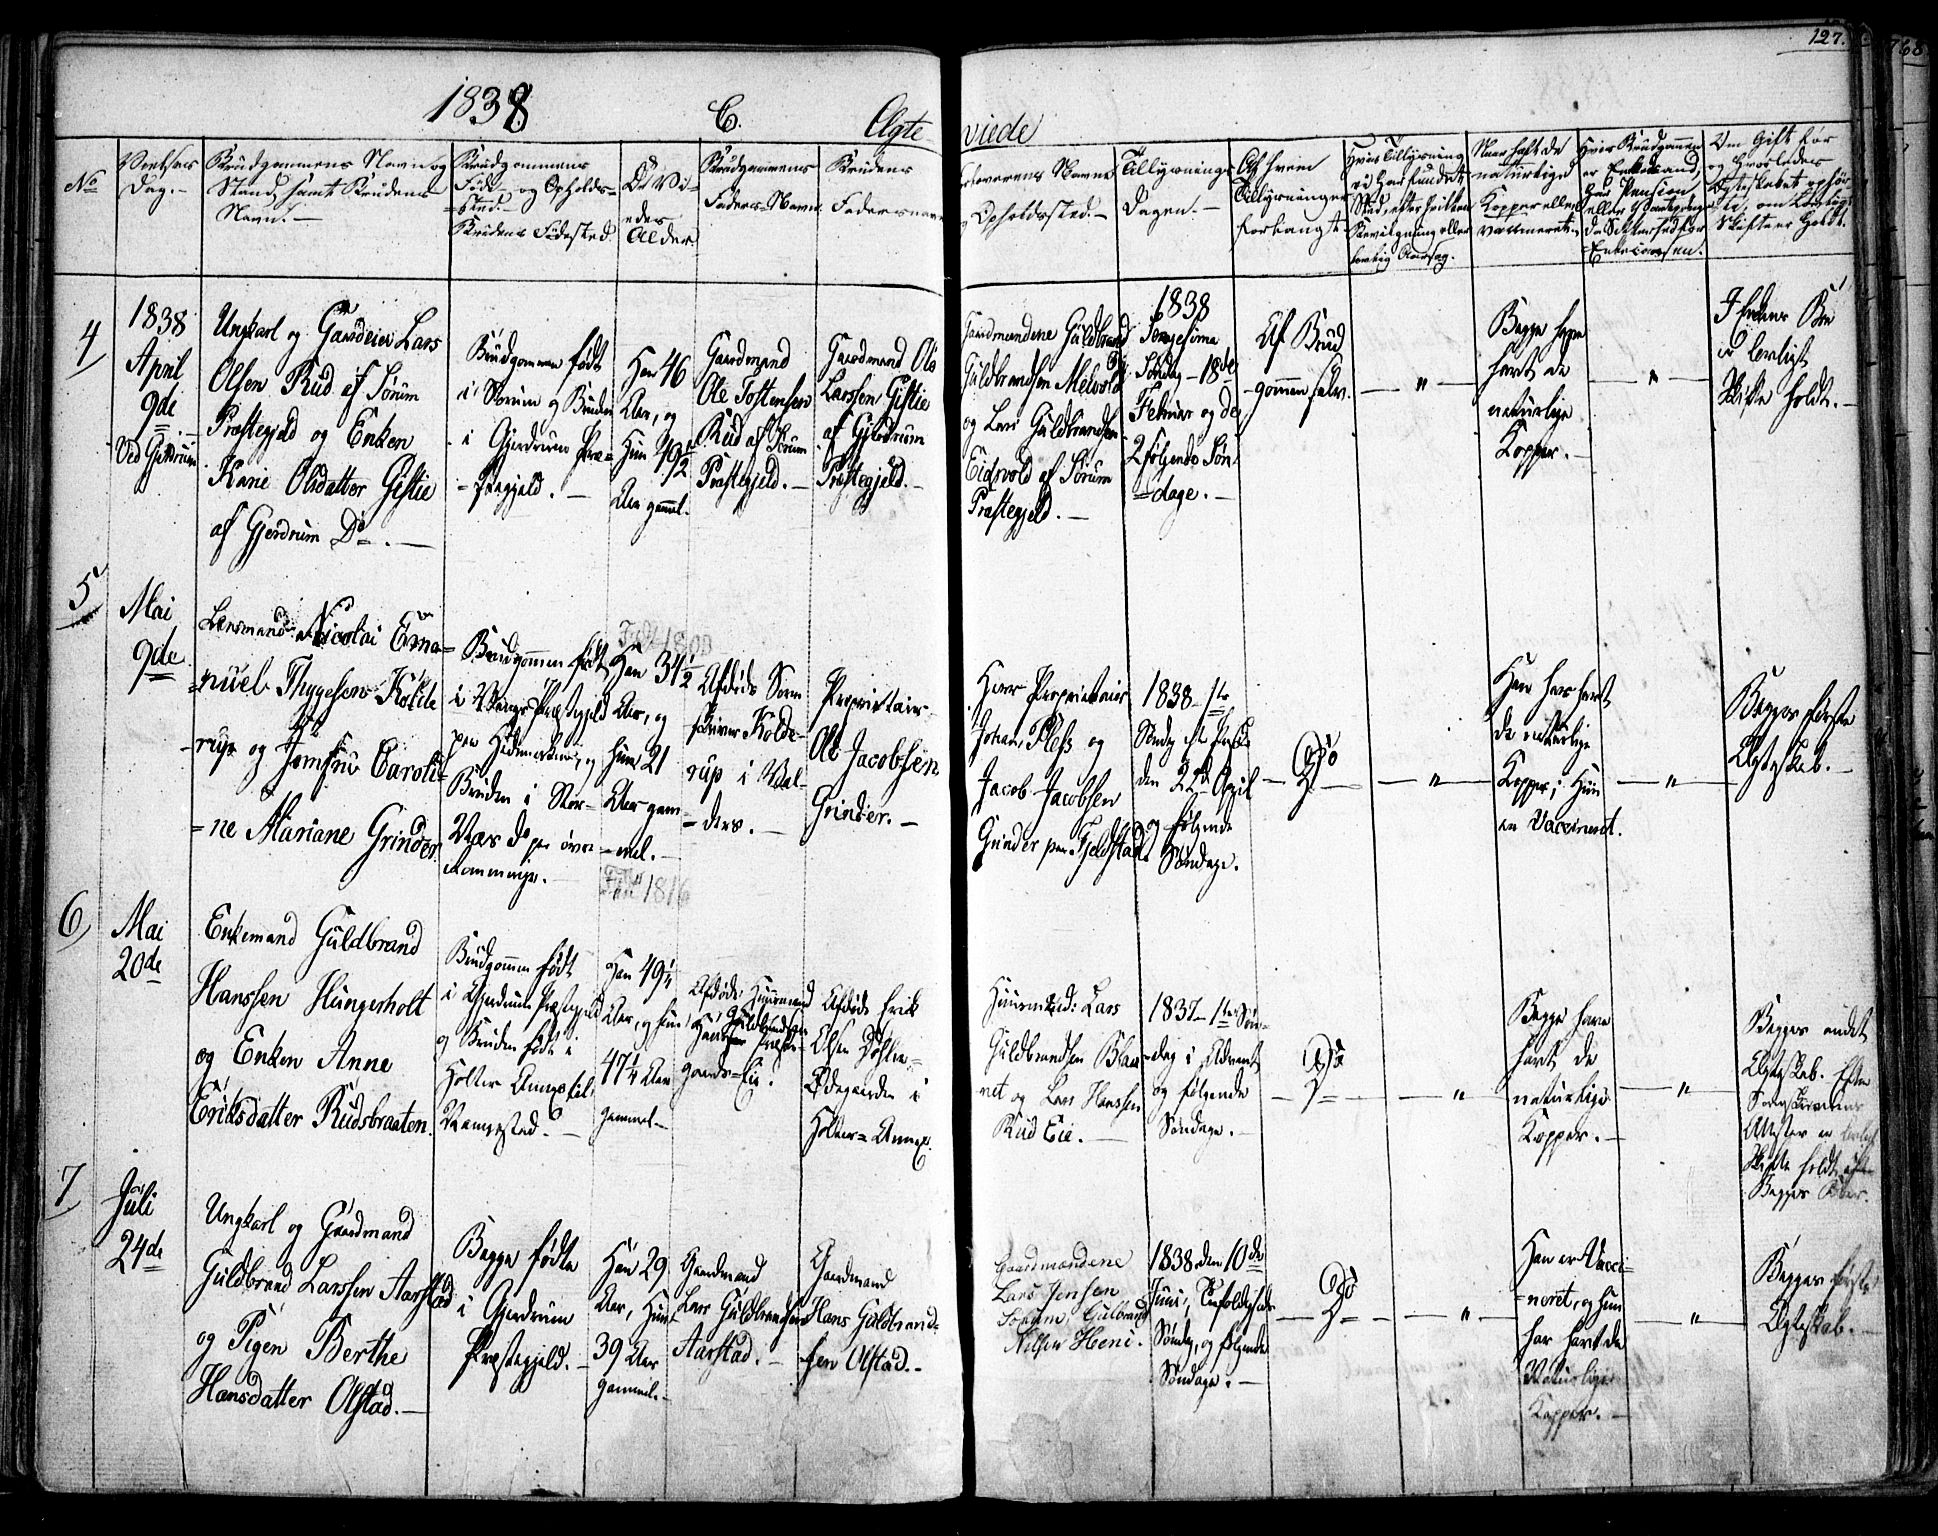 127.
1838
C.
Ægte-
viede
No
Dag.
Brudgommens Navn og
Stand, samt Brudens
Navn.
Brudgommens
Føde- og Opholds=
=sted.
Brudens Fødested
De Vi-
edes
Alder
Brudgommens
Faders-Navn
Brudens
Fadersnavn
Forloverens Navne
og Opholdssted.
Tillysnings
Dagen.
Af hvem
Tillysningen
forlangt
Hvis Tillysning
ei har fundet
Sted, efter hvilken
Bevilgning eller
lovlig Aarsag.
Naar havt de
naturlige
Kopper eller
vaccineret.
Hvis Brudgommen
er Embedsmand,
har Pension,
Enkecassen.
Om Gift før
og hvorledes
Ægteskabet ophør-
te, om lovligt
Skifte er holdt.
4
1838
April
9de
Ved Gjerdrum
Ungkarl og Gaardeier Lars
Olsen Rud af Sørum
Præstegjeld og Enken
Kari Olsdatter Gistie
af Gjerdrum Do.
Brudgommen født
i Sørum og Bruden
i Gjerdrum Præ=
=stegjeld.
Han 46
Aar, og
Hun 49½
Aar gammel.
Gaardmand
Ole Tostensen
Rud af Sørum
Præstegjeld.
Gaardmand Ole
Larssen Gistie
af Gjerdrum
Præstegjeld.
Gaardmændene Guldbrand
Guldbrandsen Melvold
og Lars Guldbrandsen
Eidsvold af Sørum
Præstegjeld.
1838
Sexagesima
Søndag 18de
Februar og de
2 følgende Søn-
=dage.
Af Brud
-gommen selv.
"
Begge have
havt de
naturlige
Kopper.
"
I Enkens Bo
er lovligt
Skifte holdt.
5
Mai
9de
Lensmand Nicolai Ema=
=nuel Thygesen Kolde
=rup og Jomfru Caroli=
=ne Mariane Grinder
Brudgommen født
i Vangs Præstegjeld
paa Hedemarken, og
Bruden i Stor-
Næs do paa øvre
Romerige.
Født 1803
Han 34½
Aar, og
Hun 21
Aar gam-
-mel.
Født 1816
Afdøde Soren
skriver Kolde-
rup i Val-
=ders.
Proprietair
Ole Jacobsen
Grinder.
Herr Proprietair
Johan Pless og
Jacob Jacobsen
Grinder paa Fjeldstad
1838 1te
Søndag efter Paaske
den 22de April
og følgende
Søndage.
Do
"
Han har havt
de naturlige
Kopper; Hun
er Vaccineret.
"
Begges første
Ægteskab.
6
Mai
20de
Enkemand Guldbrand
Hanssen Hungerholt
og Enken Anne
Eriksdatter Rudsbraaten.
Brudgommen født
i Gjerdrum Præstegjeld
og Bruden født i
Holter Annex til
Nannestad.
Han 49¼
Aar, og hun
47¼ Aar
gammel.
Afdøde Huusmand
Hans Guldbrandsen
Præste-
gaards-Eie.
Afdøde Erik
Olsen Døhlie-
Ødegaarden i
Holter-Annex.
Huusmænd: Lars
Guldbrandsen
og Lars Hanssen
Rud Eie.
1837 1te Søn-
dag i Advent
og følgende
Søndage.
Do
"
Begge have
havt de
naturlige
Kopper.
"
Begges andet
Ægteskab. Efter
Sorenskriverens
Attester er lovligt
Skifte holdt efter
Begges Boer.
7
Juli
24de
Ungkarl og Gaardmand
Guldbrand Larssen Aarstad
og Pigen Berthe
Hansdatter Olstad.
Begge fødte
i Gjerdrum
Præstegjeld.
Han 29
Aar, Hun
39 Aar
gammel.
Gaardmand
Lars Guldbrandsen
Aarstad.
Gaardmand
Hans Guldbrand=
sen Olstad.
Gaardmændene
Lars Jensen
Guldbrand
Nilsen Heni.
1838 den 10de
Juni, Trefoldigheds
Søndag, og følgende
Søndage.
Do
"
Han er Vacci-
=neret, og hun
har havt de
Naturlige
Kopper.
"
Begges første
Ægteskab.